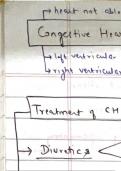 → heart not abl
Congestive Hea
→ left ventricular
→ right ventricular
Treatment of CH
→ Diuretics